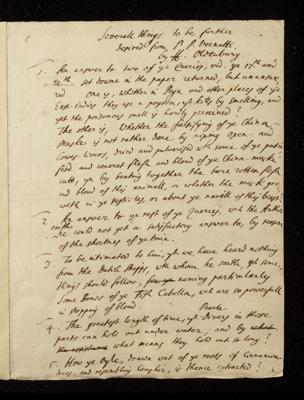 Severall things to be further
desired from
by H. Oldenburg.
1. An answer to two of ye Queries, vid. ye 17th and
20th set downe in the paper returned, but unanswe-
red One is, whether in Pegu and other places of ye
East-Indies they use a poyson, yt kills by smelling, and
yet the poysonous smell is hardly perceived?
The other is, Whether the falsifying of the China
Muske is not rather done by
Cowes-livers, dried and pulverized with some of ye
and blood of ye China-muske
catts, yn by beating together the bare rotten flesh
and blood of this animall, or whether the musk grow
2. An answer to ye rest of ye Queries, wch the Author
saith, he could not get a satisfactory answer to, by reason
of the shortnes of ye time.
3. To be intimated to him, yt we have heard nothing
from the Dutch Ships, wth whom he saith, yt some
things should follow, naming particularly
Some Bones of ye Fish Cabolla, wch are so powerfull
in stopping of blood. Pearle
4. The greatest length of time, yt Divers in those
parts can hold out under water; and by what
means they hold out so long?
5. How ye Oyle, drawn out of ye roots of Cinnamon
trees, and resembling Camphir, is thence extracted?